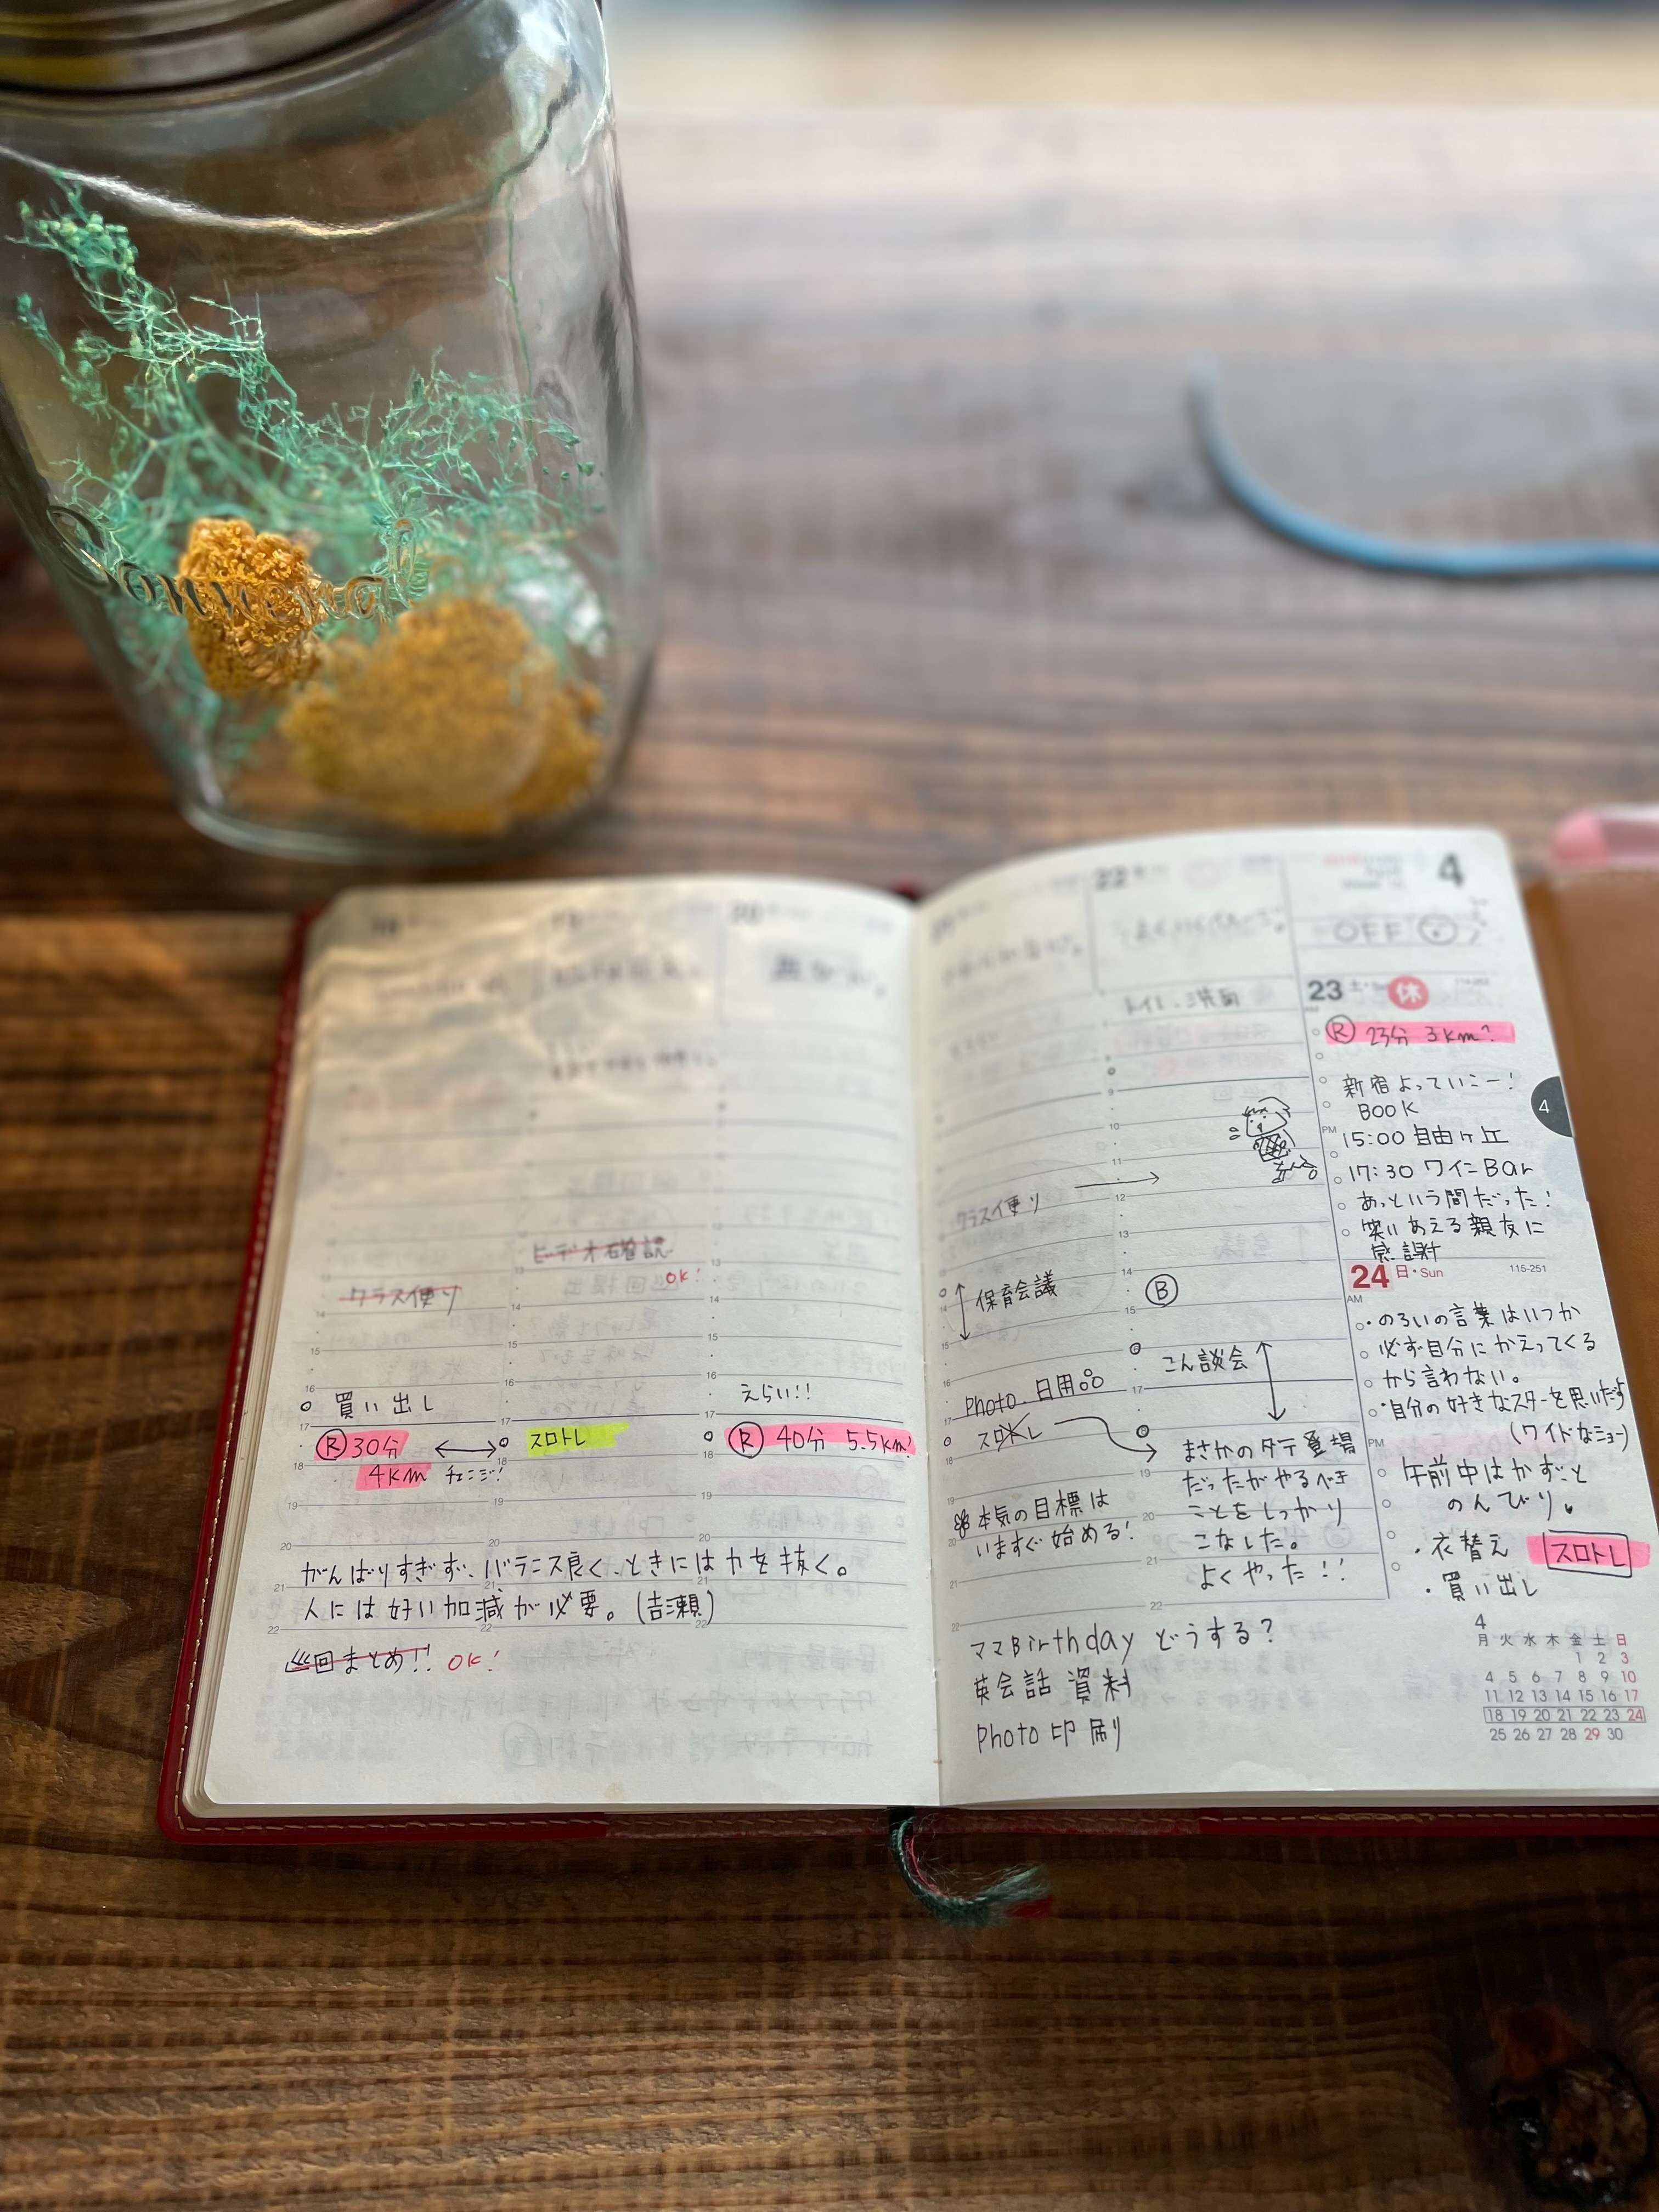 Bonne
買い出し
クラス便り
R 30分
4km チェンジ!
ビデオ確認
OK!
スロトレ
えらい!!
R 40分 5.5km!
がんばりすぎず、バランス良く、ときには力を抜く。
人には好い加減が必要。(吉瀬)
巡回まとめ!! OK!
クラス便り
保育会議
Photo. 日用品
スロトレ
本気の目標は
いますぐ始める!
22
トイレ・洗面
B
こん談会
まさかのタテ登場
だったがやるべき
ことをしっかり
こなした。
よくやった!!
ママBirthday どうする?
英会話 資料
Photo 印刷
4
OFF
23 土 休
R 23分 3km?
新宿よっていこー!
BOOK
PM 15:00 自由ヶ丘
17:30 ワインBar
あっという間だった!
笑いあえる親友に
感謝
4
24 日・Sun 115-251
AM
・のろいの言葉はいつか
必ず自分にかえってくる
から言わない。
・自分の好きなスターを思いだす
(ワイドなショー)
PM
午前中はかずと
のんびり。
・衣替え スロトレ
・買い出し
4
月 火 水 木 金 土 日
1 2 3
4 5 6 7 8 9 10
11 12 13 14 15 16 17
18 19 20 21 22 23 24
25 26 27 28 29 30